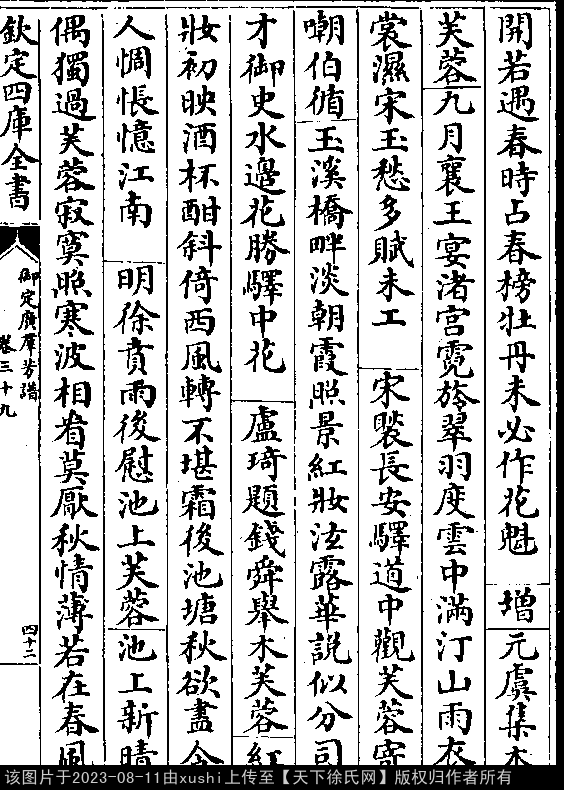 開若遇春時占春榜牡丹未必作花魁 增 元虞集木
芙蓉九月襄王宴渚宫霓旍翠羽度雲中滿汀山雨衣
裳濕宋玉愁多賦未工 宋褧長安驛道中觀芙蓉寄
嘲伯循玉溪橋畔淡朝霞照景紅妝泫露華說似分司
才御史水邊花勝驛中花 盧琦題錢舜舉木芙蓉紅
妝初映酒杯酣斜倚西風轉不堪霜後池塘秋欲盡令
人惆悵憶江南 明徐賁雨後慰池上芙蓉池上新晴
偶獨過芙蓉寂寞照寒波相看莫厭秋情薄若在春風
欽定四庫全書
御定廣羣芳譜
卷三十九
四十二
该图片于2023-08-11由xushi上传至【天下徐氏网】版权归作者所有